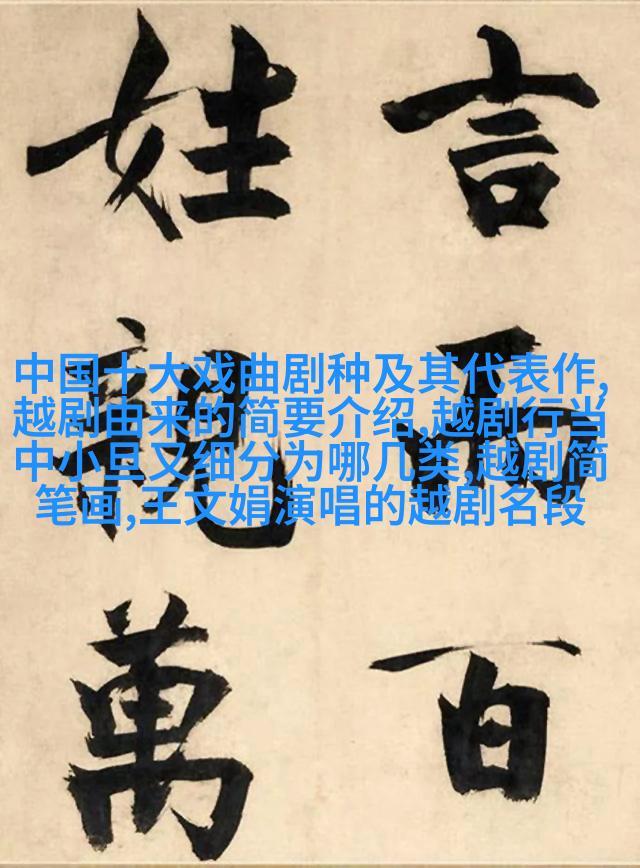 言而百
姓親萬
中国十大戏曲剧种及其代表作,
越剧由来的简要介绍,越剧行当
中小旦又细分为哪几类,越剧简
笔画,王文娟演唱的越剧名段